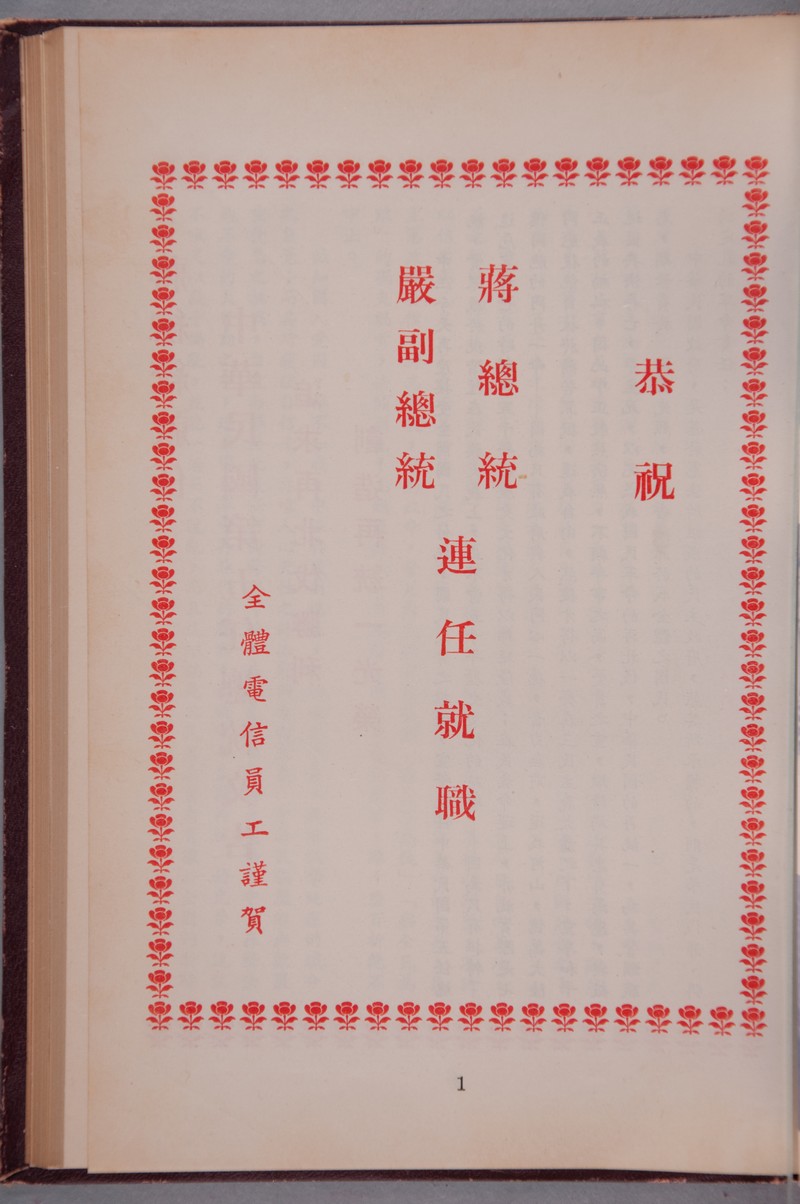 恭祝
蔣總統
嚴副總統
連任就職
全體電信員工謹賀
1